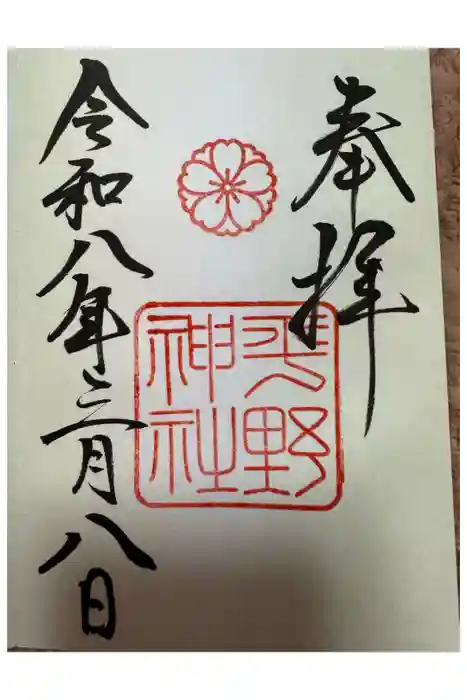 奉拝
平野
神社
令和八年三月八日